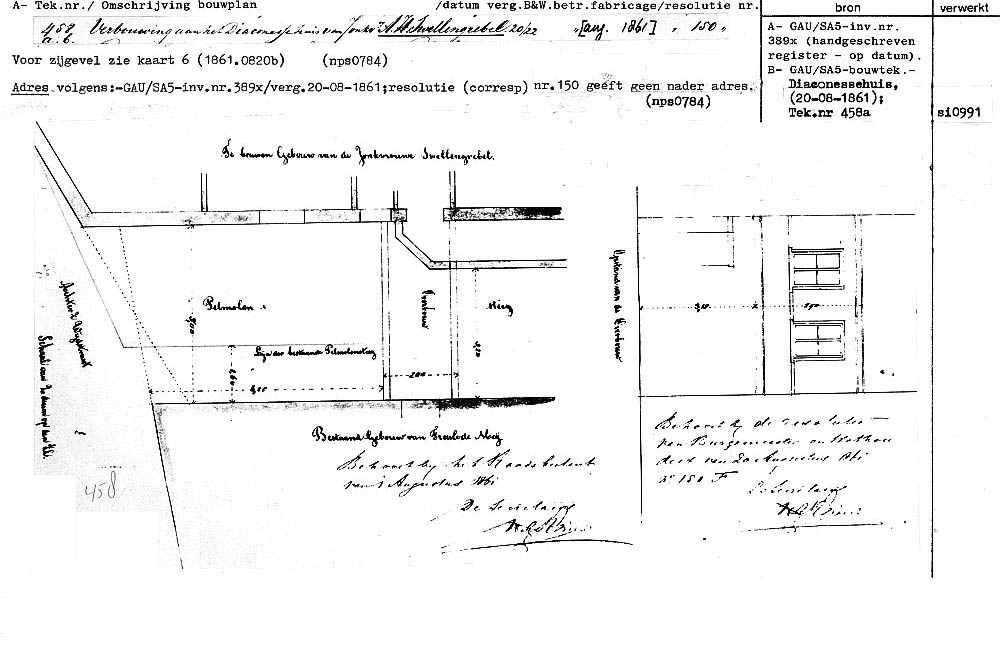 A- Tek.nr./ Omschrijving bouwplan /datum verg.B&W.betr.fabricage/resolutie nr.
bron
verwerkt
458 a.b. Verbouwing van het Diaconessehuis van Jonkvr A.H. Swellengrebel 20/22 "[aug. 1861] " 150 "
Voor zijgevel zie kaart 6 (1861.0820b) (nps0784)
Adres volgens:-GAU/SA5-inv.nr.389x/verg.20-08-1861;resolutie (corresp) nr.150 geeft geen nader adres.
(nps0784)
A- GAU/SA5-inv.nr.
389x (handgeschreven
register - op datum).
B- GAU/SA5-bouwtek.-
Diaconessehuis,
(20-08-1861);
Tek.nr 458a
si0991
Te bouwen Gebouw van de Jonkvrouwe Swellengrebel.
Pelmolen
Overbouw
Steeg
Lijn der bestaande Pelmolensteeg
200
Bestaand Gebouw van Freule de Meij
Behoort bij het Raadsbesluit
van 1 Augustus 1861
De Secretaris
458
Opstand van de Overbouw
Behoort bij de resolutie
van Burgemeester en Wethou
ders van 20 Augustus 1861
n° 150 F
De Secretaris